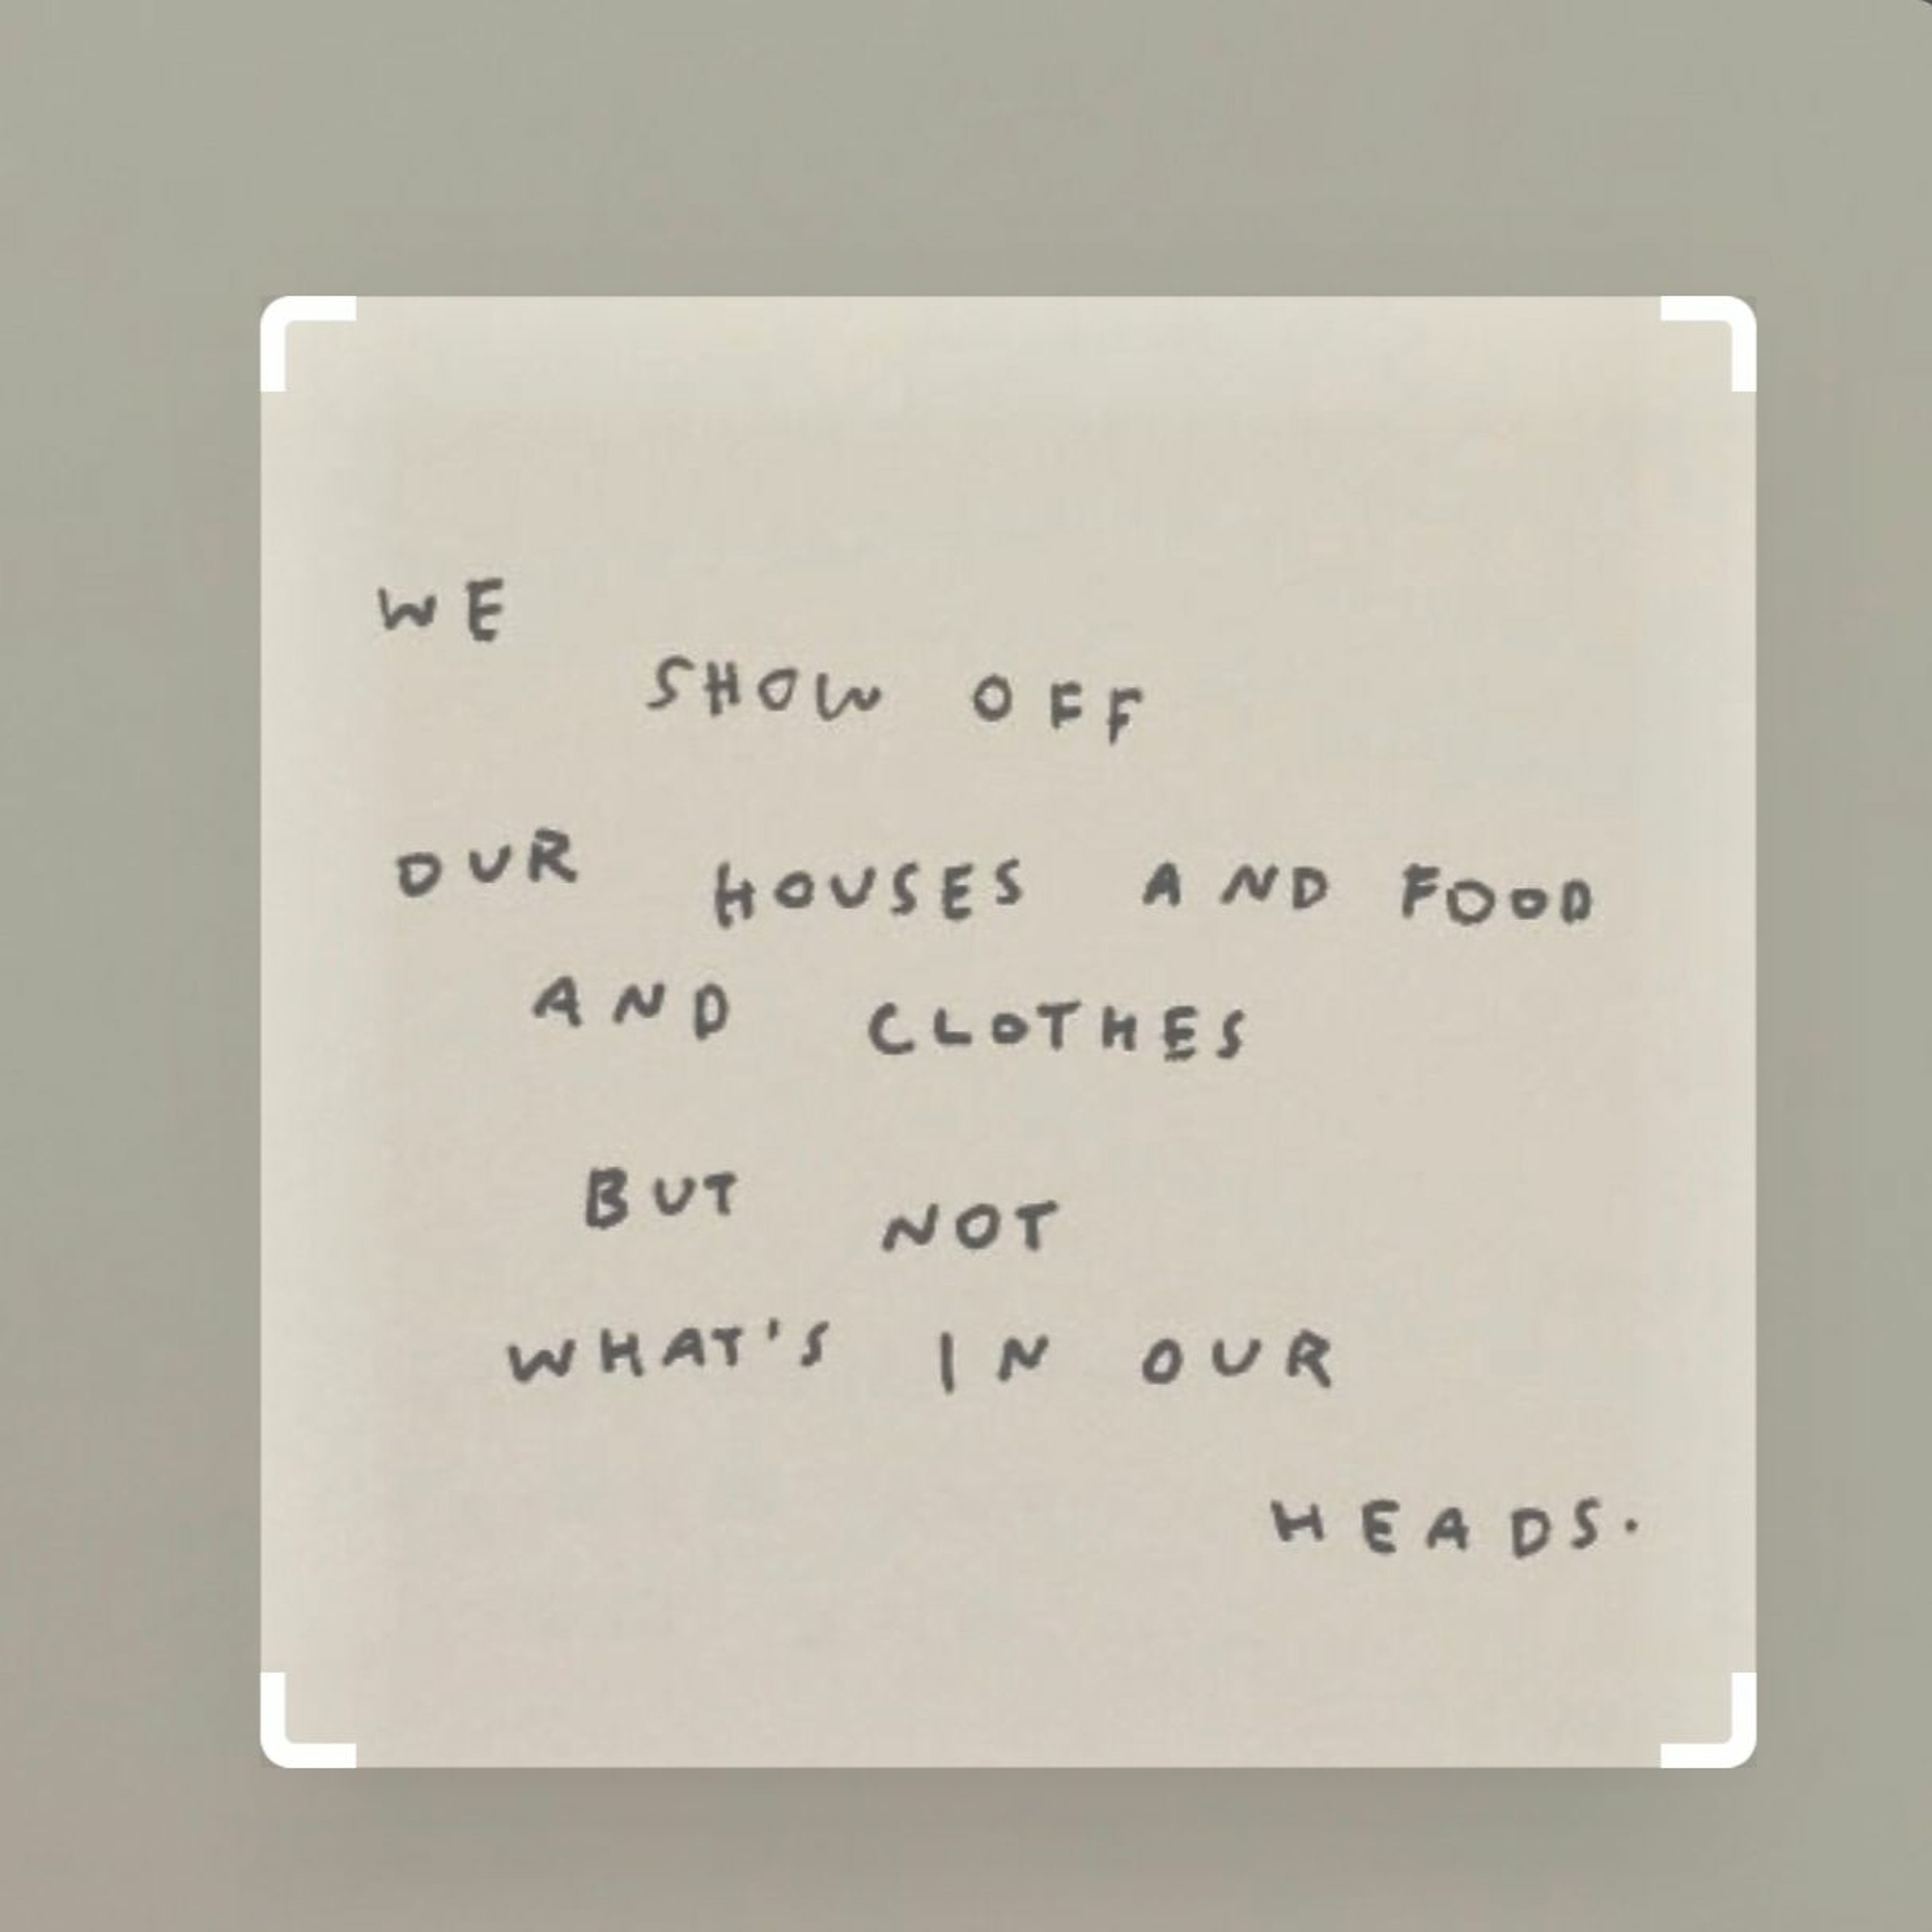 WE
SHOW OFF
OUR HOUSES AND FOOD
AND CLOTHES
BUT NOT
WHAT'S IN OUR
HEADS.